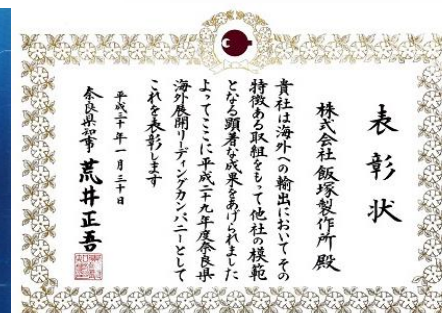 表彰状
株式会社 飯塚製作所 殿
貴社は海外への輸出において その
特徴ある取組をもって他社の模範
となる顕著な成果をあげられました
よってここに平成二十九年度奈良県
海外展開リーディングカンパニーとして
これを表彰します
平成三十年一月三十日
奈良県知事 荒井正吾